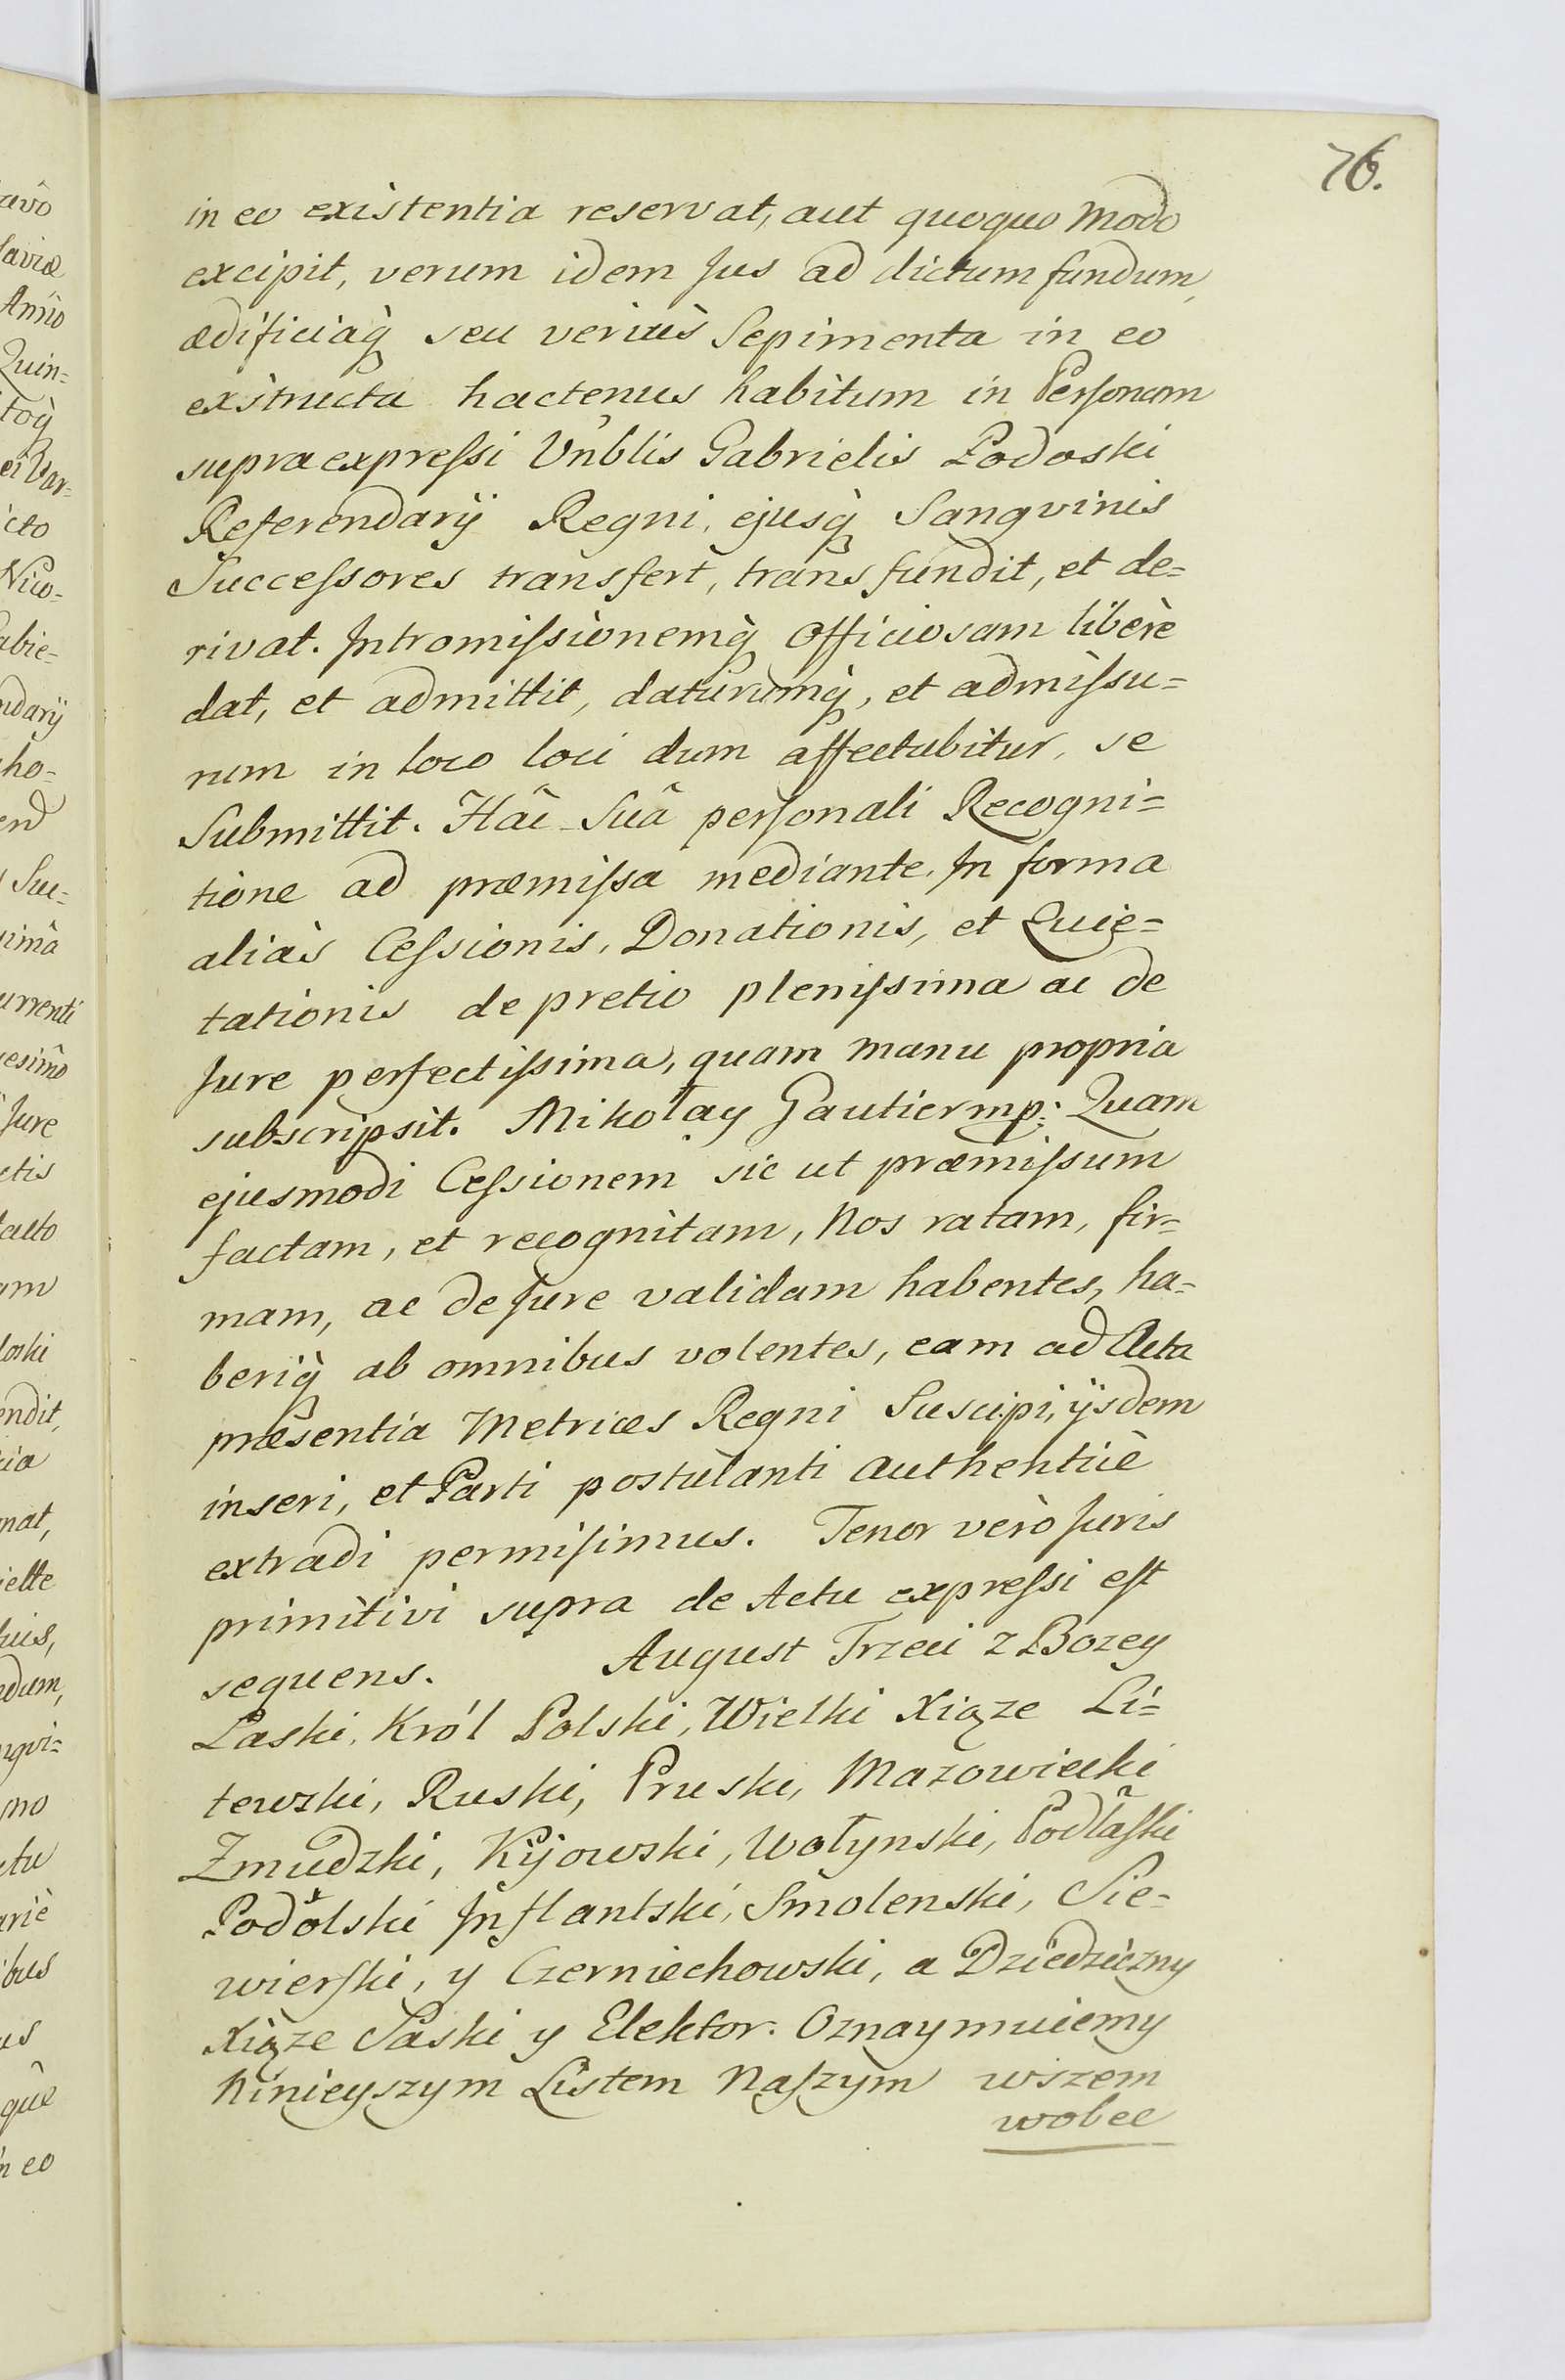 76.
in eo existentia reservat, aut quoquo modo
excipit, verum idem Jus ad dictum fundum,
ædificiaq̀ seu veriùs Sepimenta in eo
exstructa hactenus habitum in Personam
supra expreſsi Vnblis Gabrielis Podoski
Referendarÿ Regni, ejusq̀ Sangvinis
Succeſsores transfert, transfundit, et de=
rivat. Intromiſsionemq̀ Officiosam liberè
dat, et admittit, daturumq̀, et admiſsu=
rum in loco loci dum affectabitur, se
Submittit. Hâc Suâ perſonali Recogni=
tione ad præmiſsa mediante. In forma
aliàs Ceſsionis, Donationis, et Quie=
tationis de pretio pleniſsima ac de
Jure perfectiſsima, quam manu propria
subscripsit. Mikołay Gautier mp: Quam
ejusmodi Ceſsionem sic ut præmiſsum
factam, et recognitam, Nos ratam, fir=
mam, ac de Jure validam habentes, ha=
beriq̀ ab omnibus volentes, eam ad Acta
præsentia Metrices Regni Suscipi, ijsdem
inseri, et Parti postulanti authenticè
extradi permiſimus. Tenor verò Juris
primitivi supra de Actu expreſsi eſt
sequens. August Trzeci z Bozey
Laski, Król Polski, Wielki Xiąze Li=
tewski, Ruski, Pruski, Mazowiecki
Zmudzki, Kijowski, Wołynski, Podlaſki
Podolski Inflantski, Smolenski, Sie=
wierſki, y Czerniechowski, a Dziedziczny
Xiąze Saski y Elektor. Oznaymuiemy
Ninieyszym Listem Naſzym wszem
wobec